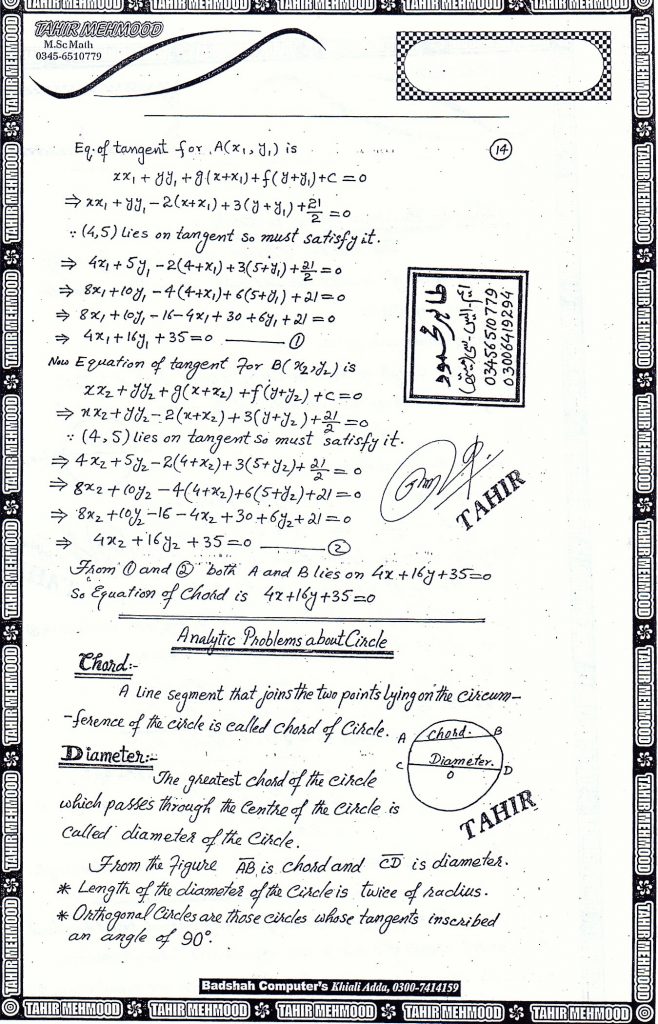 TAHIR MEHMOOD
M.Sc Math
0345-6510779
14
Eq. of tangent for A(x₁, y₁) is
xx₁ + yy₁ + g(x+x₁) + f(y+y₁) + c = 0
⇒ xx₁ + yy₁ - 2(x+x₁) + 3(y+y₁) + 21/2 = 0
∵ (4,5) lies on tangent so must satisfy it.
⇒ 4x₁ + 5y₁ - 2(4+x₁) + 3(5+y₁) + 21/2 = 0
⇒ 8x₁ + 10y₁ - 4(4+x₁) + 6(5+y₁) + 21 = 0
⇒ 8x₁ + 10y₁ - 16 - 4x₁ + 30 + 6y₁ + 21 = 0
⇒ 4x₁ + 16y₁ + 35 = 0 ——— ①
Now Equation of tangent for B(x₂, y₂) is
xx₂ + yy₂ + g(x+x₂) + f(y+y₂) + c = 0
⇒ xx₂ + yy₂ - 2(x+x₂) + 3(y+y₂) + 21/2 = 0
∵ (4,5) lies on tangent so must satisfy it.
⇒ 4x₂ + 5y₂ - 2(4+x₂) + 3(5+y₂) + 21/2 = 0
⇒ 8x₂ + 10y₂ - 4(4+x₂) + 6(5+y₂) + 21 = 0
⇒ 8x₂ + 10y₂ - 16 - 4x₂ + 30 + 6y₂ + 21 = 0
⇒ 4x₂ + 16y₂ + 35 = 0 ——— ②
From ① and ② both A and B lies on 4x + 16y + 35 = 0
So Equation of Chord is 4x + 16y + 35 = 0
طاہر محمود
ایم۔ایس۔سی (میتھ)
03456510779
03006419294
TAHIR
Analytic Problems about Circle
Chord:-
A line segment that joins the two points lying on the circum-
-ference of the circle is called chord of Circle.
A chord. B
C Diameter. D
O
Diameter:-
The greatest chord of the circle
which passes through the Centre of the Circle is
called diameter of the Circle.
TAHIR
From the Figure A̅B̅ is chord and C̅D̅ is diameter.
* Length of the diameter of the Circle is twice of radius.
* Orthogonal Circles are those circles whose tangents inscribed
an angle of 90°.
Badshah Computer's Khiali Adda, 0300-7414159
TAHIR MEHMOOD TAHIR MEHMOOD TAHIR MEHMOOD TAHIR MEHMOOD TAHIR MEHMOOD